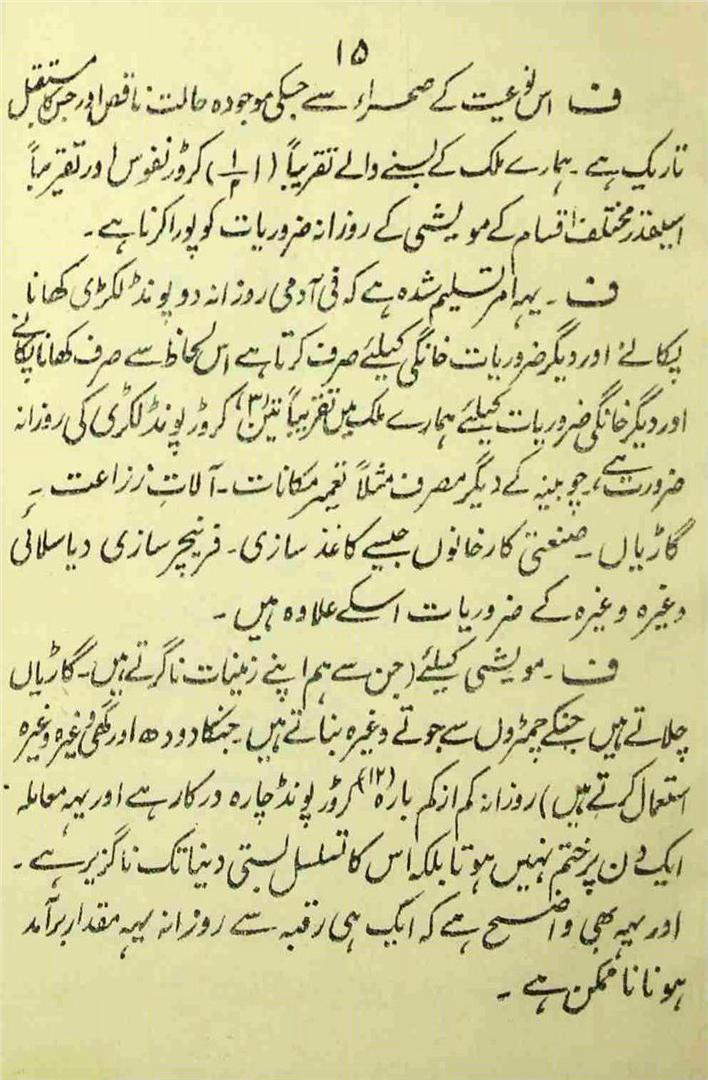 ۱۵
ف اس نوعیت کے صحراء سے جسکی موجودہ حالت ناقص اور جس کا مستقبل
تاریک ہے ۔ ہمارے ملک کے بسنے والے تقریباً (۱ ۱/۲) کروڑ نفوس اور تقریباً
اسیقدر مختلف اقسام کے مویشی کے روزانہ ضروریات کو پورا کرنا ہے ۔
ف ۔ یہہ امر تسلیم شدہ ہے کہ فی آدمی روزانہ دو پونڈ لکڑی کھانا
پکانے اور دیگر ضروریات خانگی کیلئے صرف کرتا ہے اس لحاظ سے صرف کھانا پکانے
اور دیگر خانگی ضروریات کیلئے ہمارے ملک میں تقریباً تین (۳) کروڑ پونڈ لکڑی کی روزانہ
ضرورت ہے ، چوبینہ کے دیگر مصرف مثلاً تعمیر مکانات ۔ آلات زراعت ۔
گاڑیاں ۔ صنعتی کارخانوں جیسے کاغذ سازی ۔ فرنیچر سازی دیا سلائی
وغیرہ وغیرہ کے ضروریات اسکے علاوہ ہیں ۔
ف ۔ مویشی کیلئے (جن سے ہم اپنے زمینات ناگرتے ہیں ۔ گاڑیاں
چلاتے ہیں جنکے چمڑوں سے جوتے وغیرہ بناتے ہیں ۔ جنکا دودھ اور گھی وغیرہ وغیرہ
استعمال کرتے ہیں) روزانہ کم از کم بارہ (۱۲) کروڑ پونڈ چارہ درکار ہے اور یہہ معاملہ
ایک دن پر ختم نہیں ہوتا بلکہ اس کا تسلسل بستی دنیا تک ناگزیر ہے ۔
اور یہہ بھی واضح ہے کہ ایک ہی رقبہ سے روزانہ یہہ مقدار برآمد
ہونا ناممکن ہے ۔